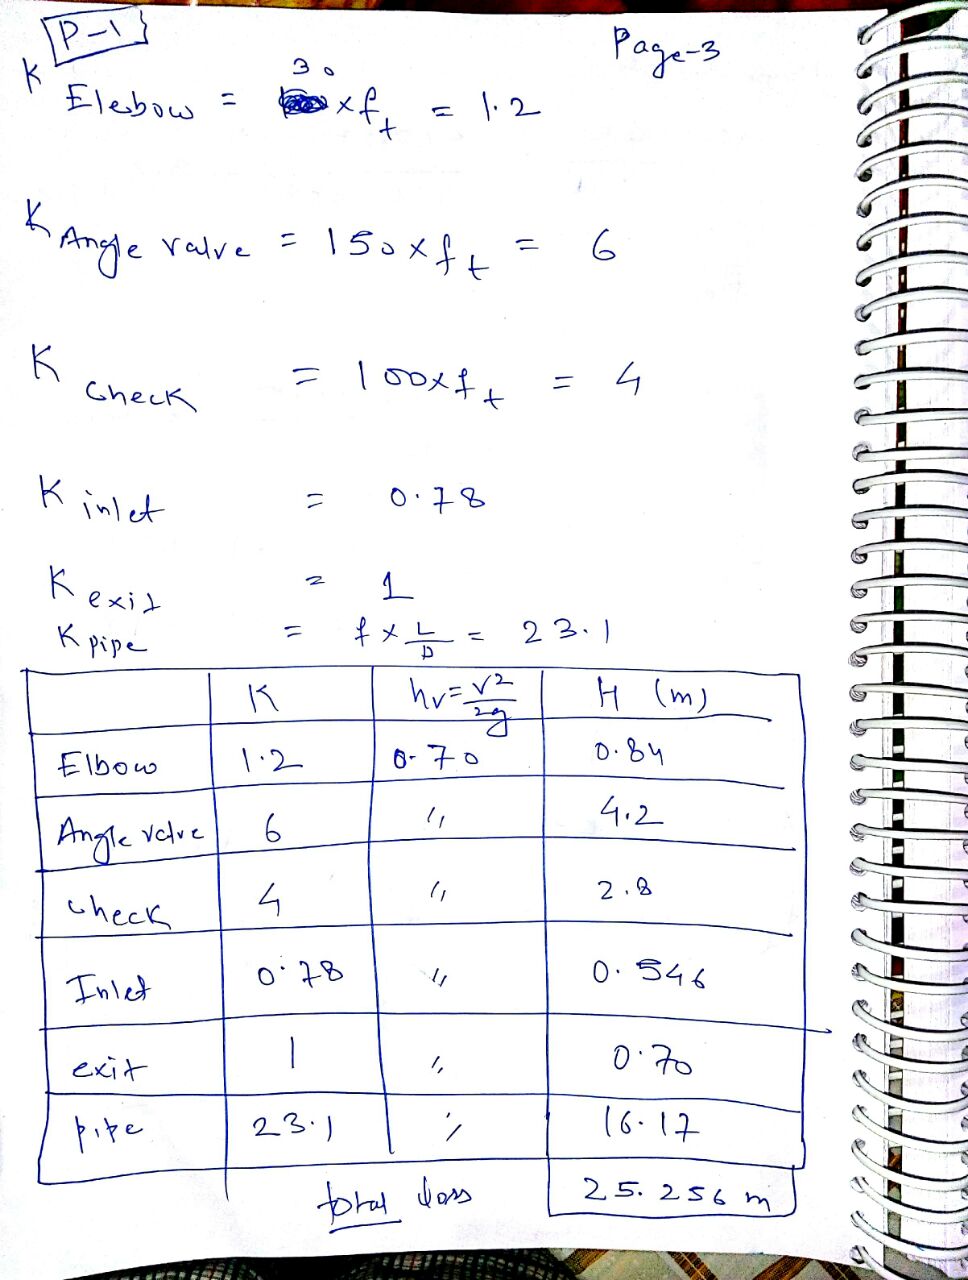 P-1
Page-3
K Elebow = 30 x f_t = 1.2
K Angle valve = 150 x f_t = 6
K check = 100 x f_t = 4
K inlet = 0.78
K exit = 1
K pipe = f x L/D = 23.1
K hv = v²/2g H (m)
Elbow 1.2 0.70 0.84
Angle valve 6 " 4.2
check 4 " 2.8
Inlet 0.78 " 0.546
exit 1 " 0.70
pipe 23.1 " 16.17
total loss 25.256 m